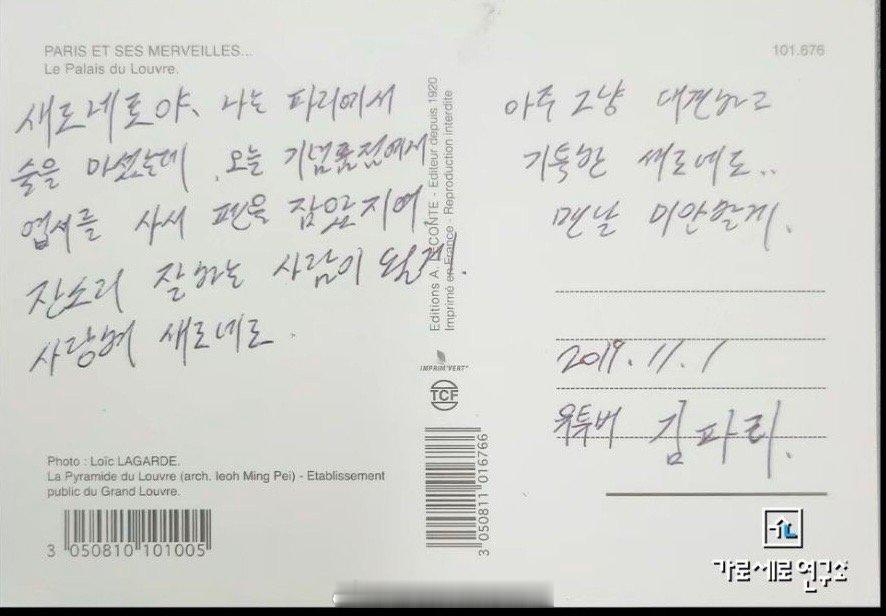 PARIS ET SES MERVEILLES...
Le Palais du Louvre.
101.676
새로네로야, 나는 파리에서
술을 마셨는데 오늘 기념품점에서
엽서를 사서 펜을 잡았지여.
잔소리 잘하는 사람이 될게.
사랑해 새로네로.
Editions A. LECONTE - Editeur depuis 1920
Imprimé en France - Reproduction interdite
IMPRIM'VERT®
TCF
3 050811 016766
아주 그냥 대견하고
기특한 새로네로..
맨날 미안할게.
2019. 11. 1
유투버 김파리.
Photo : Loïc LAGARDE.
La Pyramide du Louvre (arch. Ieoh Ming Pei) - Etablissement
public du Grand Louvre.
3 050810 101005
가로세로연구소